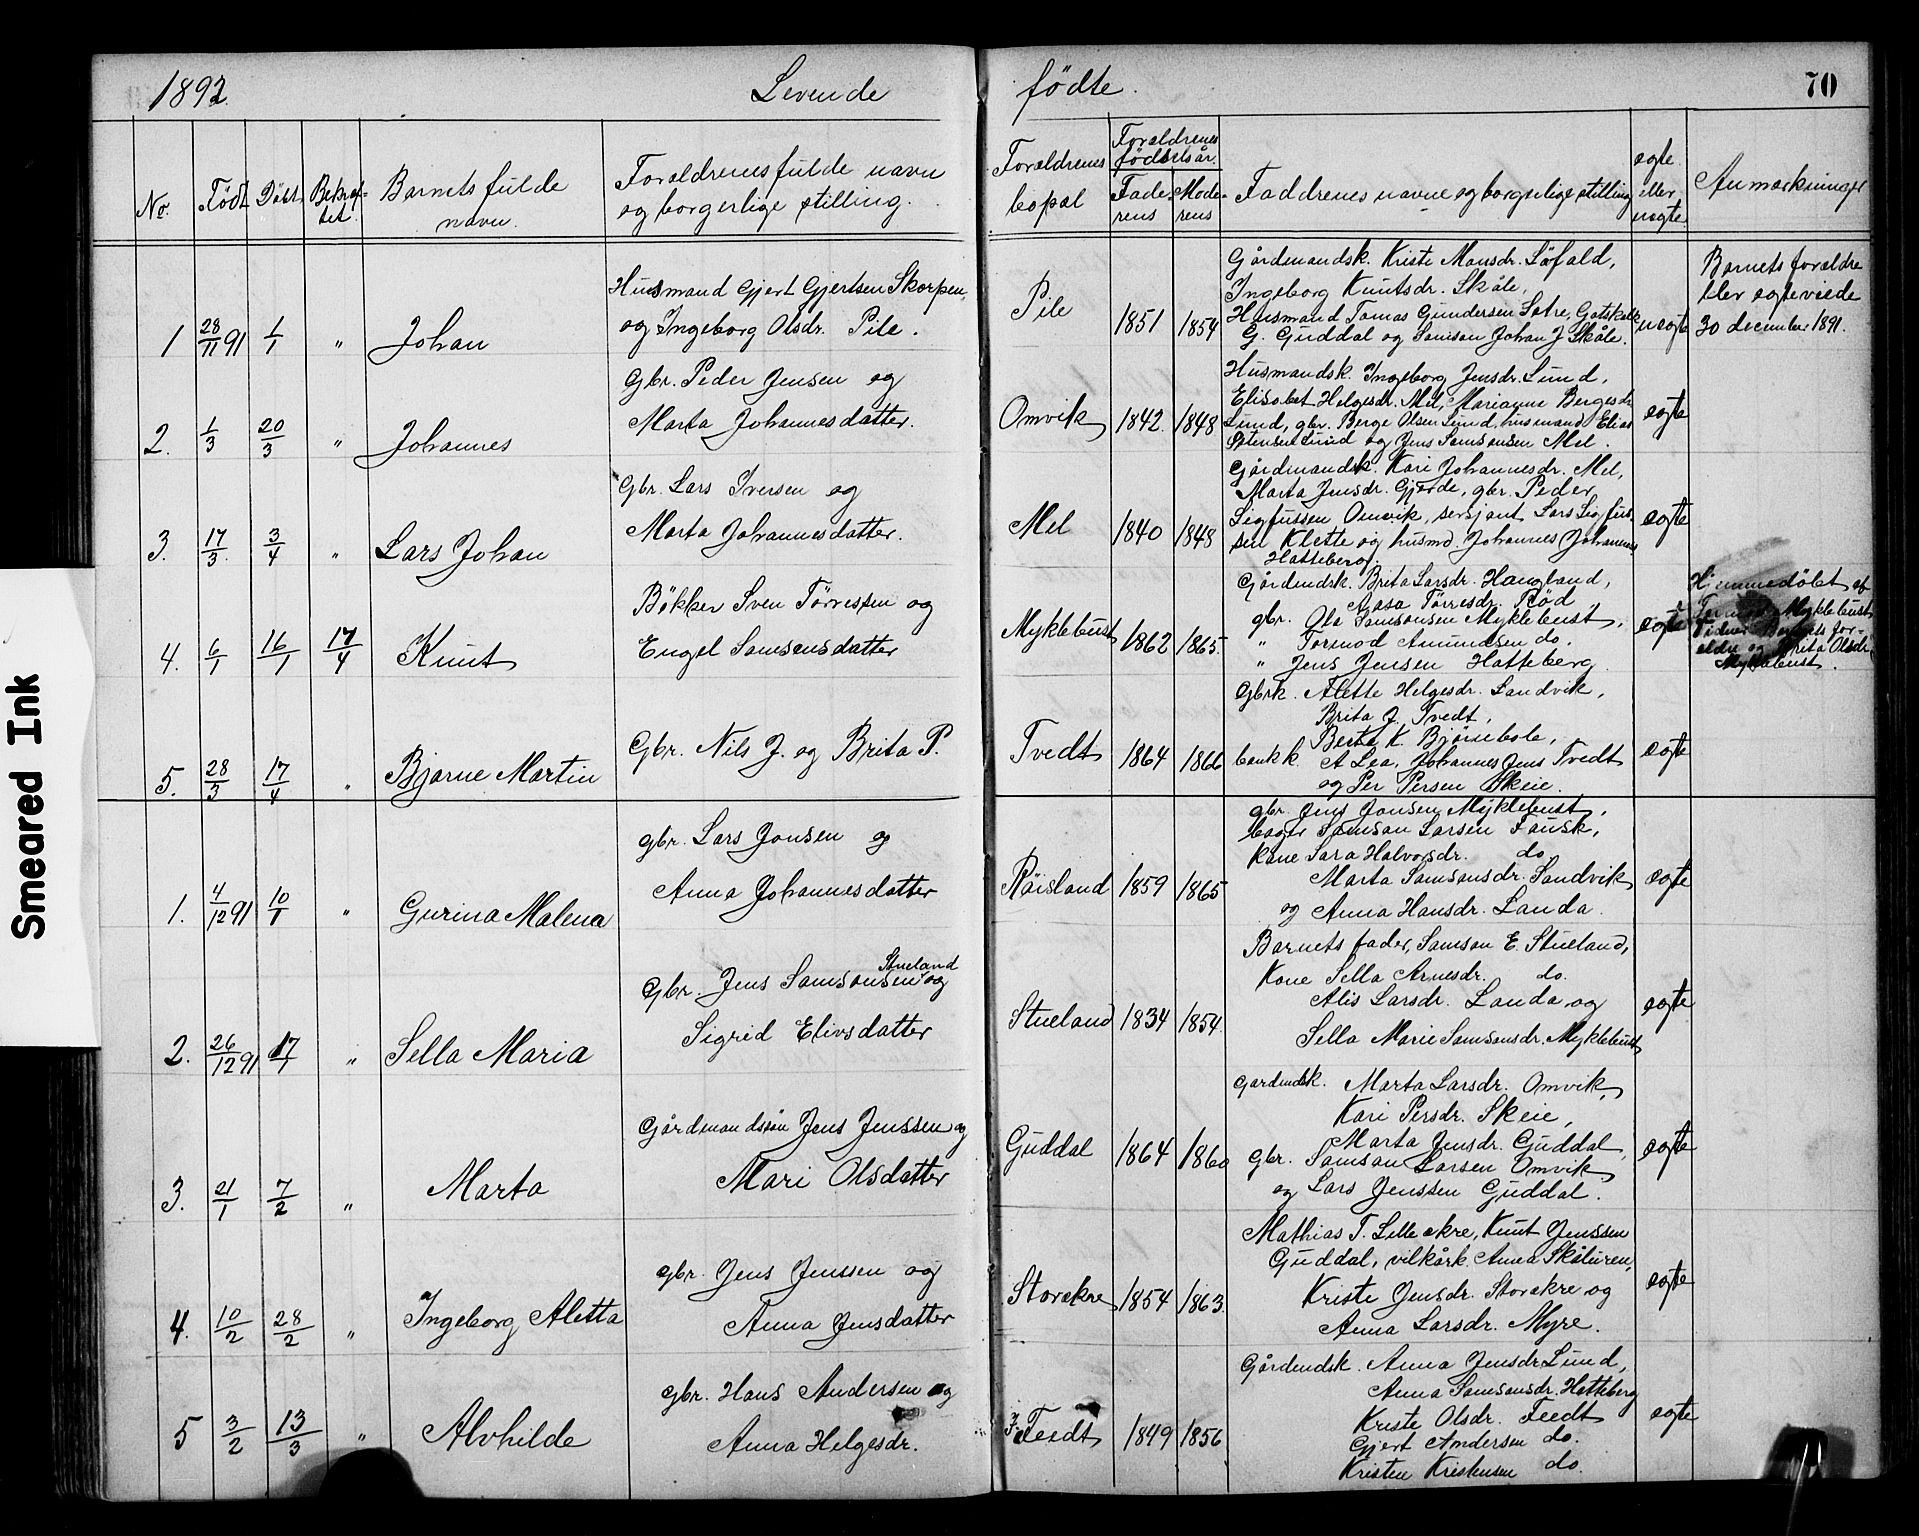 1892.
Levende
födte.
70
No.
Födt
Döbt
Bekræf-
tet.
Barnets fulde
navn.
Forældrenes fulde navn
og borgerlige stilling.
Forældrenes
bopæl
Forældrenes
födselsår.
Fade-
rens
Mode-
rens
Faddrenes navne og borgerlige stilling
ægte
eller
uægte.
Anmærkninger
1 28/11 91 1/1 " Johan
Husmand Gjert Gjertsen Skorpen,
og Ingeborg Olsdr. Pile.
Pile 1851 1854
Gårdmandsk. Kriste Mansdr. Löfald,
Ingeborg Knutsdr. Skåle,
Husmand Tomas Gundersen Sætre, Gotskalk
G. Guddal og Samson Johan J Skåle.
uægte
Barnets forældre
blev ægteviede
30 december 1891.
2. 1/3 20/3 " Johannes
Gbr. Peder Jensen og
Marta Johannesdatter.
Omvik 1842. 1848
Husmandsk. Ingeborg Jensdr. Lund,
Elisabet Helgesdr. Mel, Marianne Bergesdr
Lund, gbr. Berge Olsen Lund, husmand Elias
Lund og Jens Samsonsen Mel.
ægte
3. 17/3. 3/4 " Lars Johan
Gbr. Lars Iversen og
Marta Johannesdatter.
Mel 1840 1848
Gårdmandsk. Kari Johannesdr. Mel,
Marta Jensdr. Gjerde, gbr. Peder
Sigfussen Omvik, sersjant Lars Sigfus-
sen Klette og husmd. Johannes Johannes
Hatteberg.
ægte
4. 6/1 16/1 17/4 Knut
Bökker Sven Törressen og
Engel Samsonsdatter
Myklebust 1862 1865.
Gårdmdsk. Brita Larsdr. Haugland,
Aasa Törresdr. Röd
gbr. Ola Samsonsen Myklebust,
" Tormod Amundsen do.
" Jens Jensen Hatteberg.
ægte
Hjemmedöbt af
Myklebust
Vidner: Barnets for-
ældre og Brita Olsdr.
Myklebust.
5. 28/3 17/4 " Bjarne Martin
Gbr. Nils J. og Brita P.
Tvedt 1864 1866
Gbrk. Alette Helgesdr. Sandvik,
Brita J. Tvedt,
Berta K. Björnebole,
ungk. A Lea, Johannes Jens Tvedt
og Per Persen Skeie.
ægte
1. 4/12 91 10/1 " Gurina Malena
gbr. Lars Jonsen og
Anna Johannesdatter
Röisland 1859 1865
gbr. Jens Jonsen Myklebust,
bager Samson Larsen Fausk,
Kone Sara Halvorsdr. do
Marta Samsonsdr. Sandvik
og Anna Hansdr. Landa.
ægte
2. 26/12 91 17/1 " Sella Maria
Gbr. Jens Samsonsen Stueland og
Sigrid Elivsdatter
Stueland 1834 1854.
Barnets fader, Samson E. Stueland,
Kone Sella Arnesdr. do.
Alis Larsdr. Landa og
Sella Marie Samsonsdr. Myklebust
ægte
3. 21/1 7/2 " Marta
Gårdmandssön Jens Jenssen og
Mari Olsdatter
Guddal 1864 1860
Gardmdsk. Marta Larsdr. Omvik,
Kari Persdr. Skeie,
Marta Jensdr. Guddal,
Gbr. Samson Larsen Omvik
og Lars Jenssen Guddal.
ægte
4. 10/2 28/2 " Ingeborg Aletta
gbr. Jens Jenssen og
Anna Jensdatter
Storakre 1854 1863.
Mathias T. Lilleakre, Knut Jenssen
Guddal, vilkårk. Anna Skåluren,
Kriste Jensdr. Storakre og
Anna Larsdr. Myre.
ægte
5 3/2 13/3 " Alvhilde
gbr. Hans Andersen og
Anna Helgesdr.
Feedt 1849 1856
Gårdmdsk. Anna Jensdr Lund,
Anna Samsonsdr. Hatteberg
Kriste Olsdr. Feedt
Gjert Andersen do.
Kristen Kristensen do.
ægte
Smeared Ink